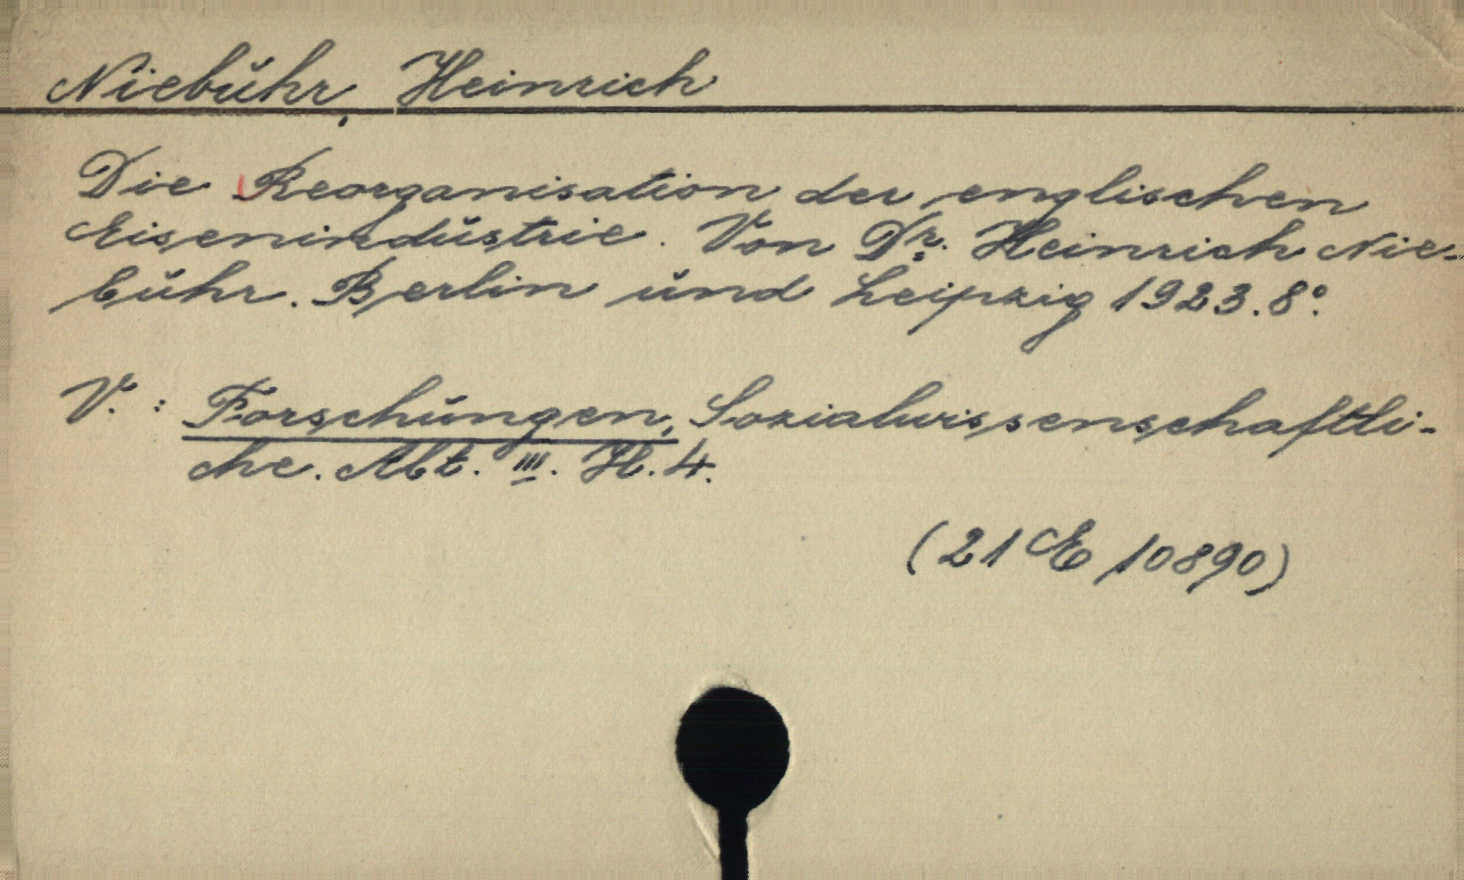 Niebuhr, Heinrich
Die Reorganisation der englischen
Eisenindustrie. Von Dr. Heinrich Nie-
buhr. Berlin und Leipzig 1923. 8°.
V. : Forschungen, Sozialwissenschaftli-
che. Abt. III. H. 4.
(21 E 10890)